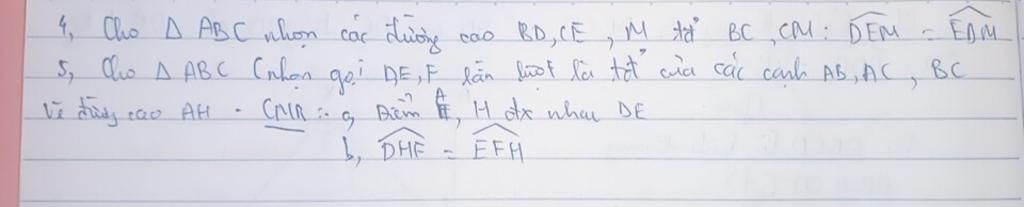 4, Cho Δ ABC nhọn các đường cao BD, CE, M tđ' BC, CM: DEM = EDM
5, Cho Δ ABC (nhọn gọi D, E, F lần lượt là tđ' của các cạnh AB, AC, BC
Vẽ đường cao AH. CMR: a, Điểm A, H đx nhau DE
b, DHF = EFH